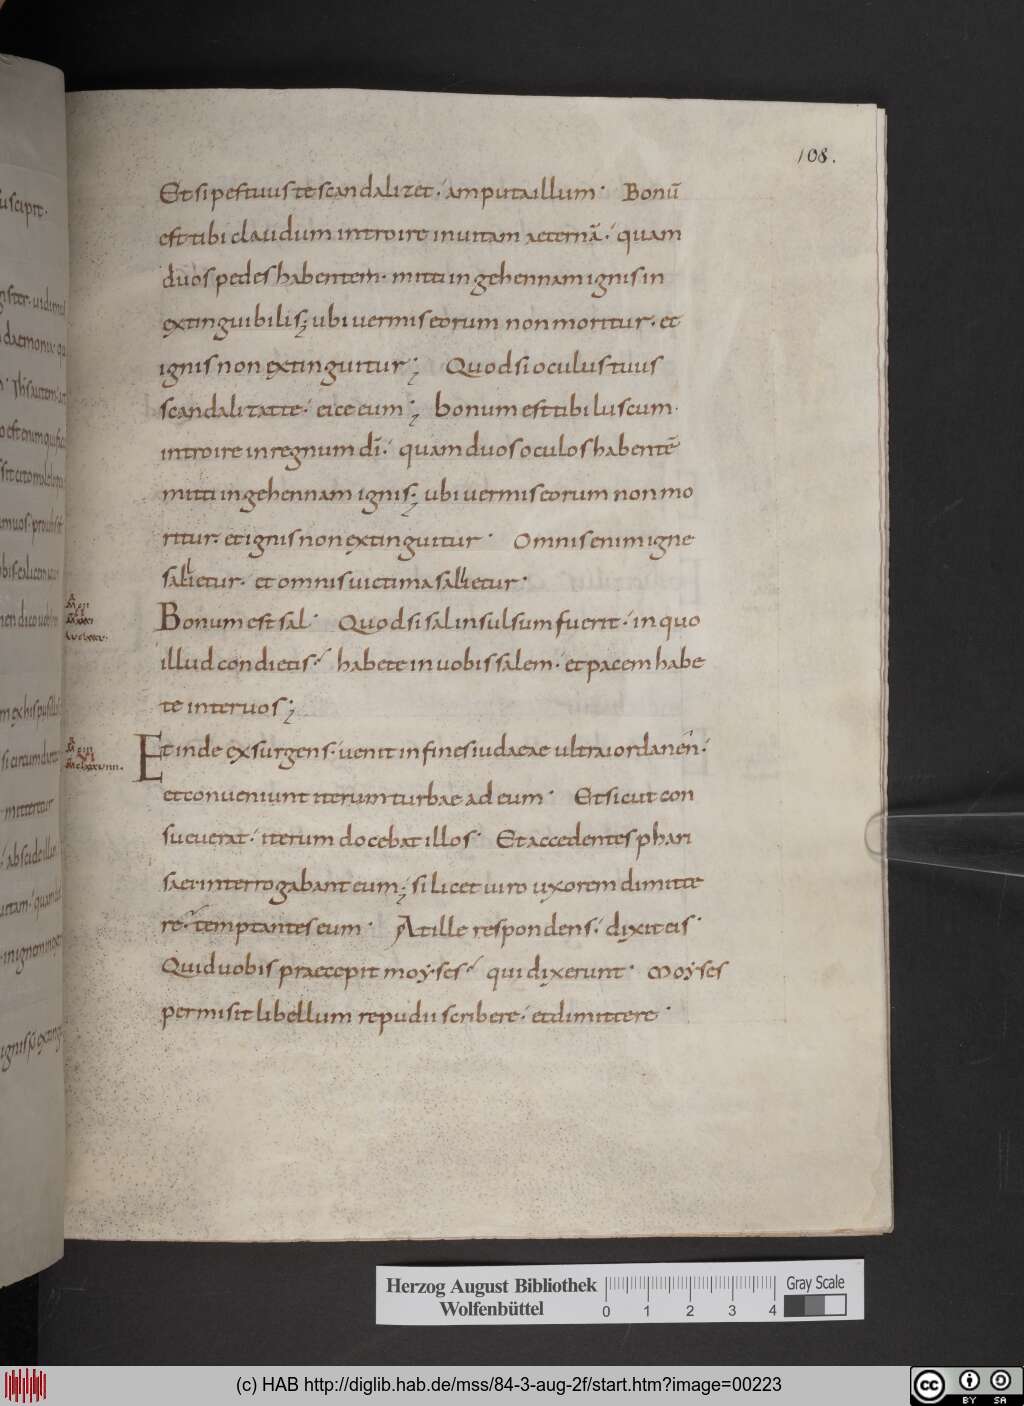 108.
Et si pes tuus te scandalizet. amputa illum. Bonū
est tibi claudum introire in uitam aeternā. quam
duos pedes habentem. mitti in gehennam ignis in
extinguibilis; ubi uermis eorum non moritur. et
ignis non extinguitur; Quod si oculus tuus
scandalizat te. eice eum; bonum est tibi luscum.
introire in regnum dī. quam duos oculos habentē
mitti in gehennam ignis; ubi uermis eorum non mo
ritur. et ignis non extinguitur. Omnis enim igne
sallietur. et omnis uictima sallietur.
Bonum est sal. Quod si sal insulsum fuerit. in quo
illud condietis. habete in uobis salem. et pacem habe
te inter uos;
Et inde exsurgens. uenit in fines iudaeae ultra iordanen.
et conueniunt iterum turbae ad eum. Et sicut con
sueuerat. iterum docebat illos. Et accedentes phari
saei interrogabant eum; si licet uiro uxorem dimitte
re. temptantes eum. At ille respondens. dixit eis.
Quid uobis praecepit moyses. qui dixerunt. Moyses
permisit libellum repudii scribere. et dimittere.
Herzog August Bibliothek
Wolfenbüttel
0 1 2 3 4
Gray Scale
(c) HAB http://diglib.hab.de/mss/84-3-aug-2f/start.htm?image=00223
cc BY SA